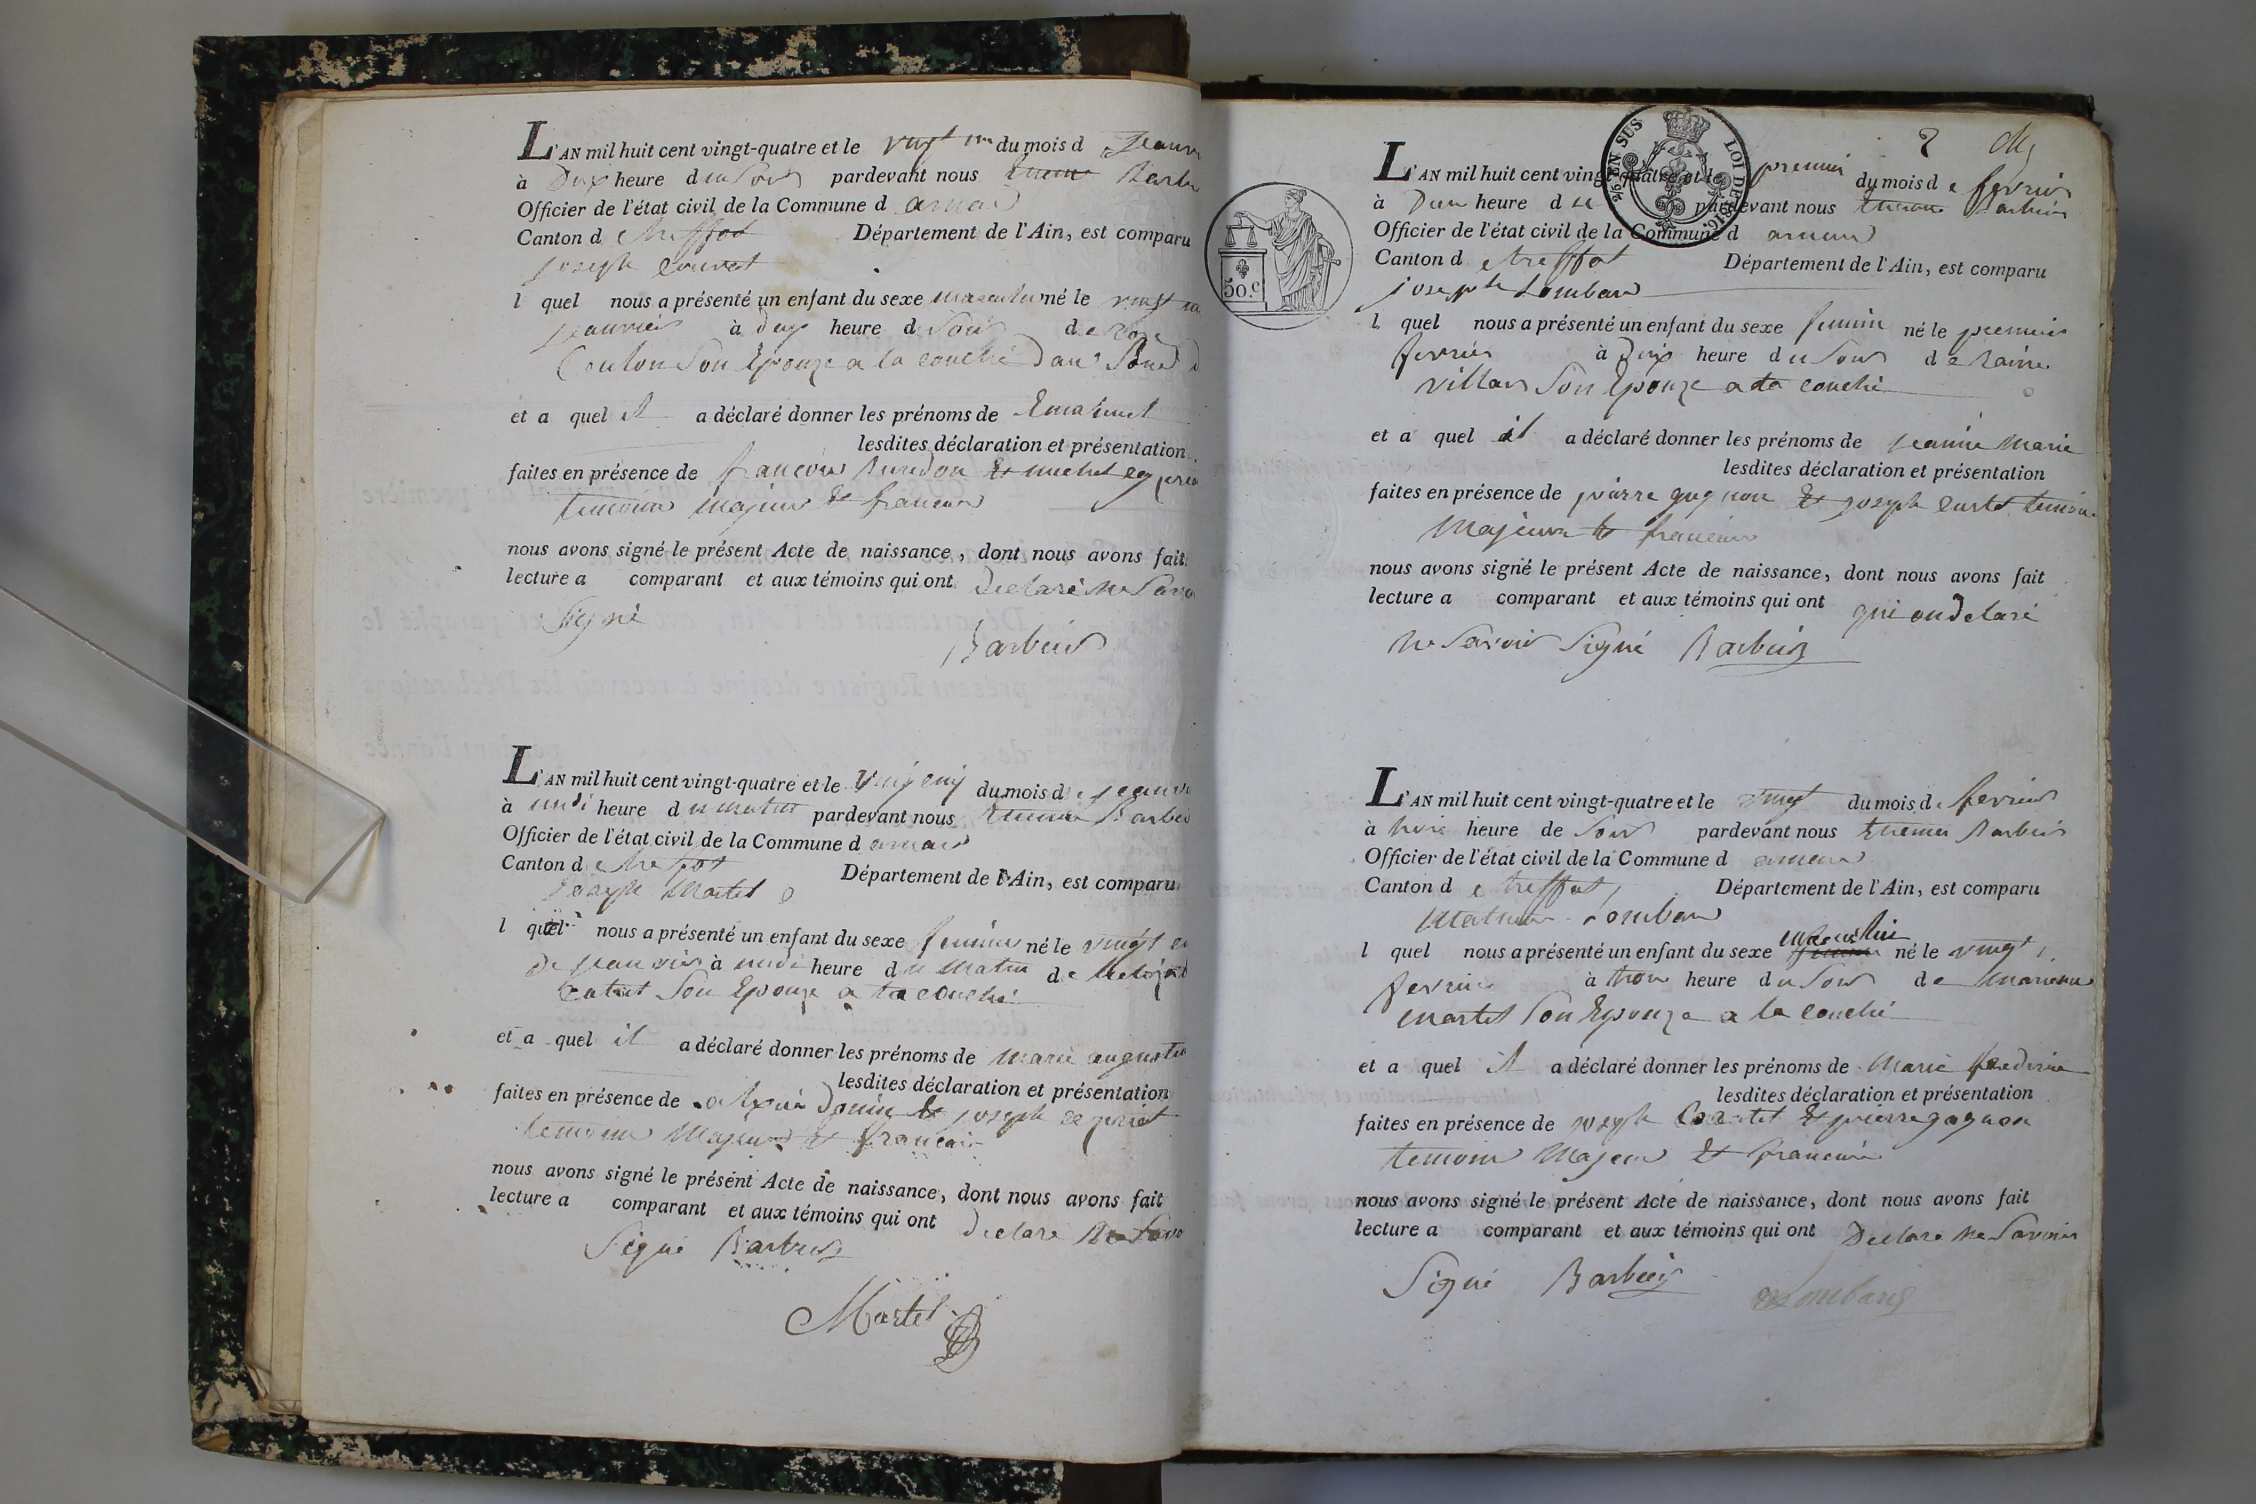 L'AN mil huit cent vingt-quatre et le vingt un du mois d
à Dux heure du Soir pardevant nous
Officier de l'état civil de la Commune d
Canton d e treffot Département de l'Ain, est comparu
joseph
l quel nous a présenté un enfant du sexe masculin né le vingt
jeanvier à dux heure d Soir de
Coulon Son Epouze a la couché dans
et a quel il a déclaré donner les prénoms de
lesdites déclaration et présentation
faites en présence de francois Et michel
temoin majeur Et francais
nous avons signé le présent Acte de naissance, dont nous avons fait
lecture a comparant et aux témoins qui ont Declaré ne
Signé
Barbier
L'AN mil huit cent vingt-quatre et le du mois d
à midi heure du matin pardevant nous
Officier de l'état civil de la Commune d
Canton d e treffot Département de l'Ain, est comparu
Joseph Martel
l quel nous a présenté un enfant du sexe feminin né le vingt
de jeanvier à midi heure du Matin de
Son Epouze a la couché
et a quel il a déclaré donner les prénoms de marie
lesdites déclaration et présentation
faites en présence de Et joseph
temoin Majeur Et francais
nous avons signé le présent Acte de naissance, dont nous avons fait
lecture a comparant et aux témoins qui ont declaré Ne
Signé Barbier
Martel
2
L'AN mil huit cent vingt-quatre et le premier du mois d e fevrier
à heure du pardevant nous Barbier
Officier de l'état civil de la Commune d
Canton d e treffot Département de l'Ain, est comparu
joseph Lombar
l quel nous a présenté un enfant du sexe feminin né le premier
fevrier à Dux heure du Soir de
villar Son Epouze a la couché
et a quel il a déclaré donner les prénoms de jeanne Marie
lesdites déclaration et présentation
faites en présence de pierre gugnon Et joseph temoin
Majeur Et francais
nous avons signé le présent Acte de naissance, dont nous avons fait
lecture a comparant et aux témoins qui ont qui on delaré
Ne Savoir Signé Barbier
50.c
EN SUS
LOI DE 1816.
L'AN mil huit cent vingt-quatre et le vingt du mois d e fevrier
à trois heure de Soir pardevant nous Barbier
Officier de l'état civil de la Commune d
Canton d e treffot Département de l'Ain, est comparu
Lombar
l quel nous a présenté un enfant du sexe masculin né le vingt
fevrier à trois heure du Soir de
martel Son Epouze a la couché
et a quel il a déclaré donner les prénoms de Marie
lesdites déclaration et présentation
faites en présence de joseph Et pierre gagnon
temoin Majeur Et francais
nous avons signé le présent Acte de naissance, dont nous avons fait
lecture a comparant et aux témoins qui ont Declaré ne Savoir
Signé Barbier
Lombard